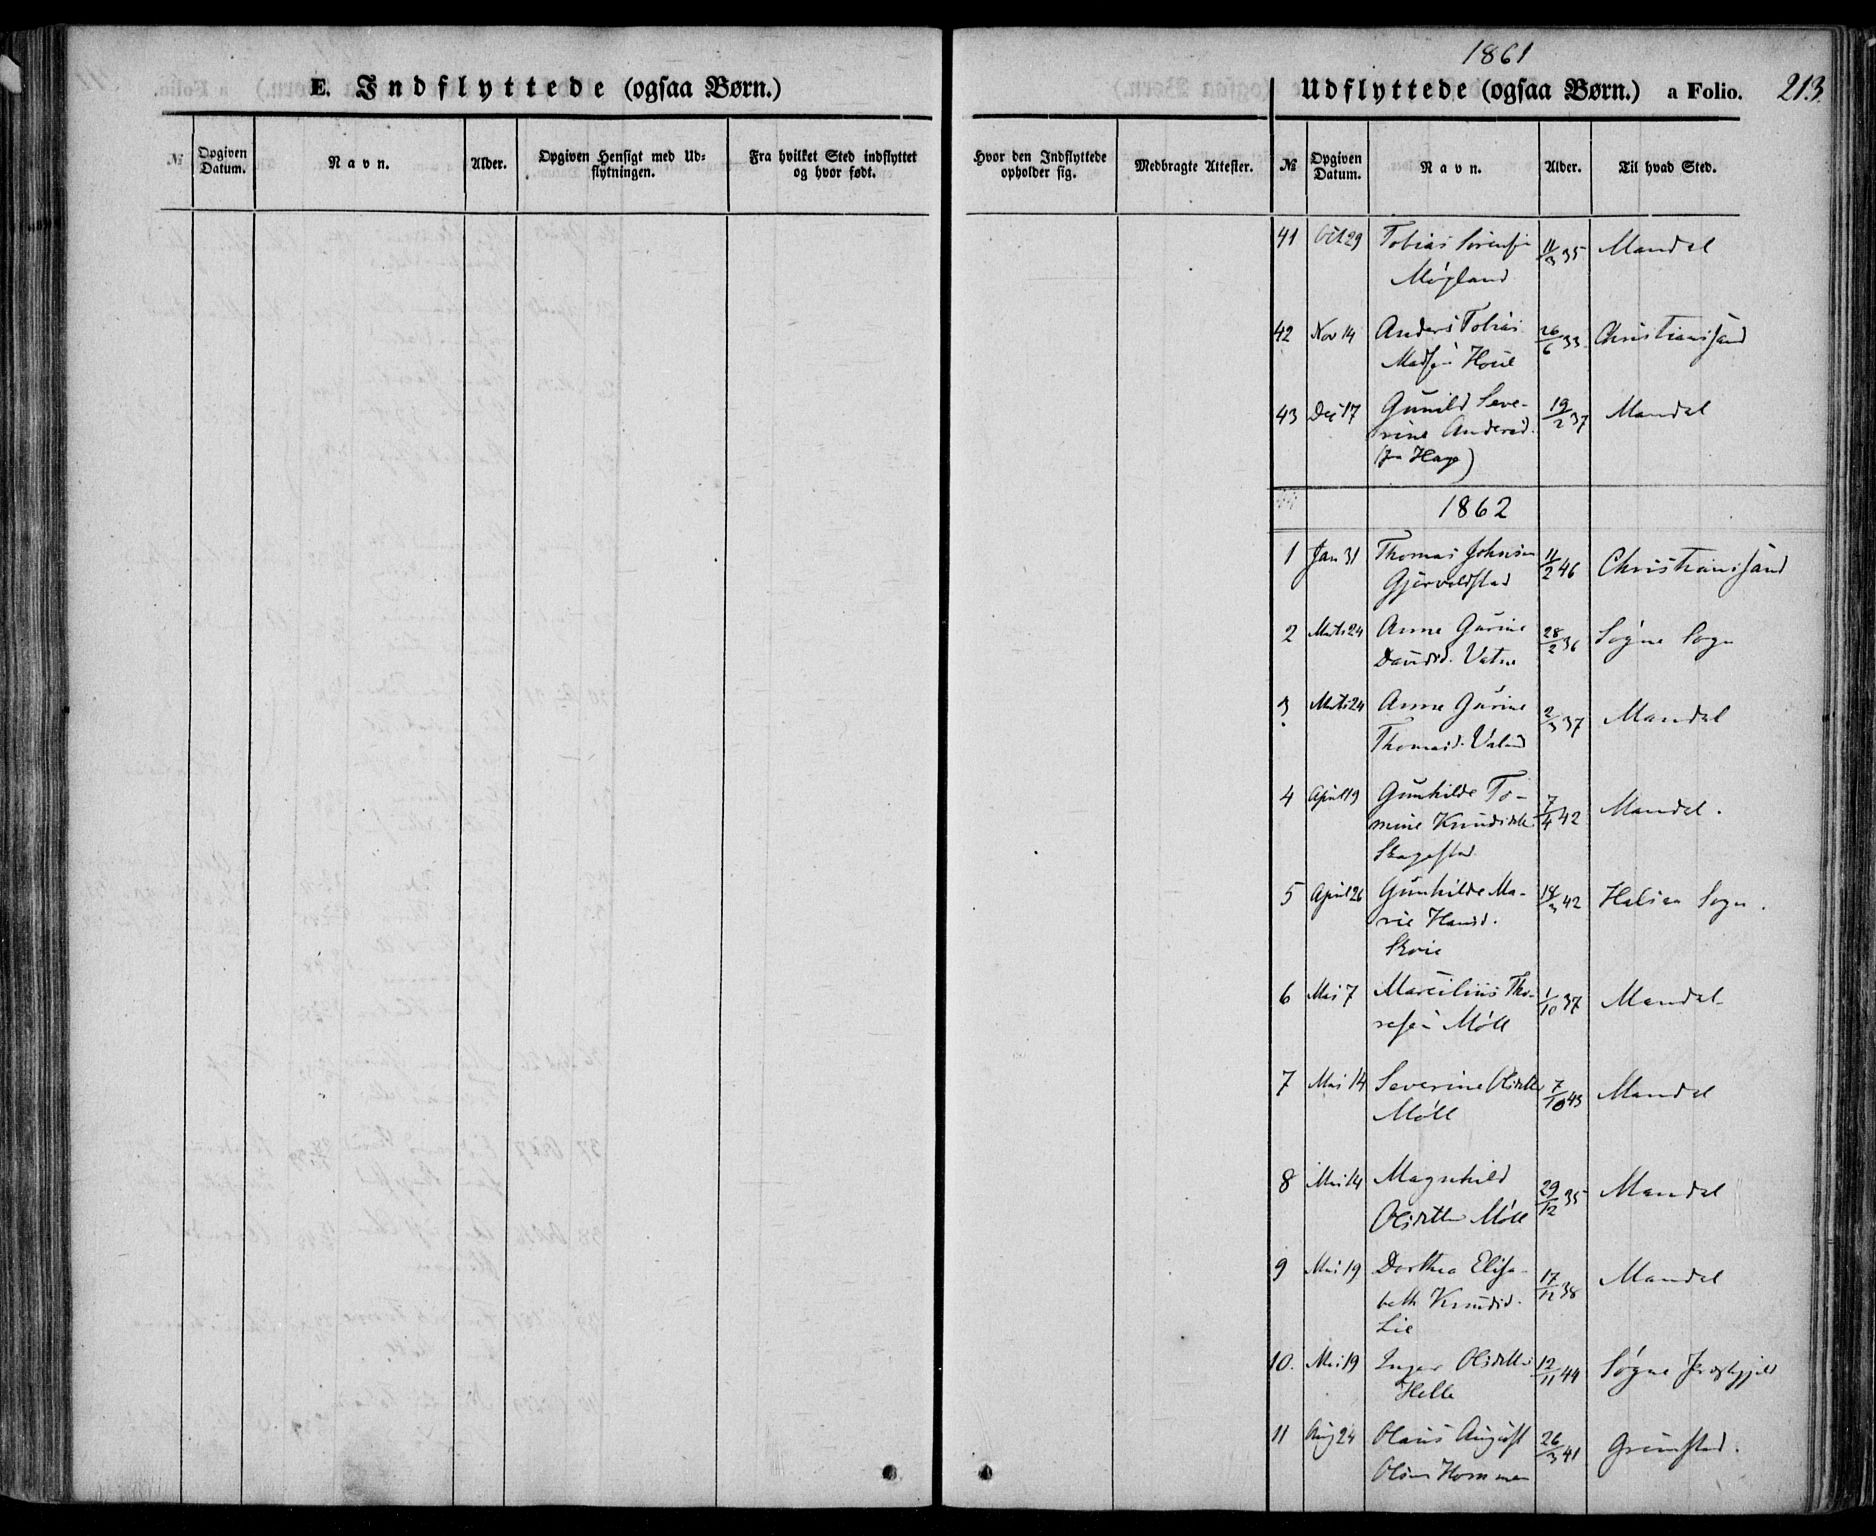 E. Indflyttede (ogsaa Børn.)
№
Opgiven Datum.
Navn.
Alder.
Opgiven Hensigt med Ud=
flytningen.
Fra hvilket Sted indflyttet
og hvor født.
1861
Udflyttede (ogsaa Børn.) a Folio. 213
Hvor den Indflyttede
opholder sig.
Medbragte Attester.
№
Opgiven Datum.
Navn.
Alder.
Til hvad Sted.
41 Oct 29 Tobias Sørensen 11/3 35 Mandal
Møgland
42 Nov 14 Anders Tobias 26/6 33 Christianssand
Madsen Houe
43 Dec 17 Gunild Seve-
rine Andersd. 19/2 37 Mandal
(fra Hage)
1862
1 Jan 31 Thomas Johnsen 11/2 46 Christianssand
Gjervoldstad
2 Marts 24 Anne Gurine 28/2 36 Søgne Sogn
Davidsd. Vatne
3 Marts 24 Anne Gurine 2/3 37 Mandal
Thomasd. Valand
4 April 19 Gunhilde To- 7/4 42 Mandal.
mine Knudsdtt.
Skagestad
5 April 26 Gunhilde Ma- 14/3 42 Halsaa Sogn.
rie Hansd.
Skoie
6 Mai 7 Marcilius Tho- 1/10 37 Mandal
resen Møll
7 Mai 14 Severine Olsdatter 7/10 43 Mandal
Møll
8 Mai 14 Magnhild 29/12 35 Mandal
Olsdatter Møll
9 Mai 19 Dorthea Elisa- 17/12 38 Mandal
beth Knudsd.
Lie
10. Mai 19 Inger Olsdatter 12/11 44 Søgne Præstegjeld
Helle
11 Aug 24 Olaus August 26/3 41 Grimstad.
Olsen Homme